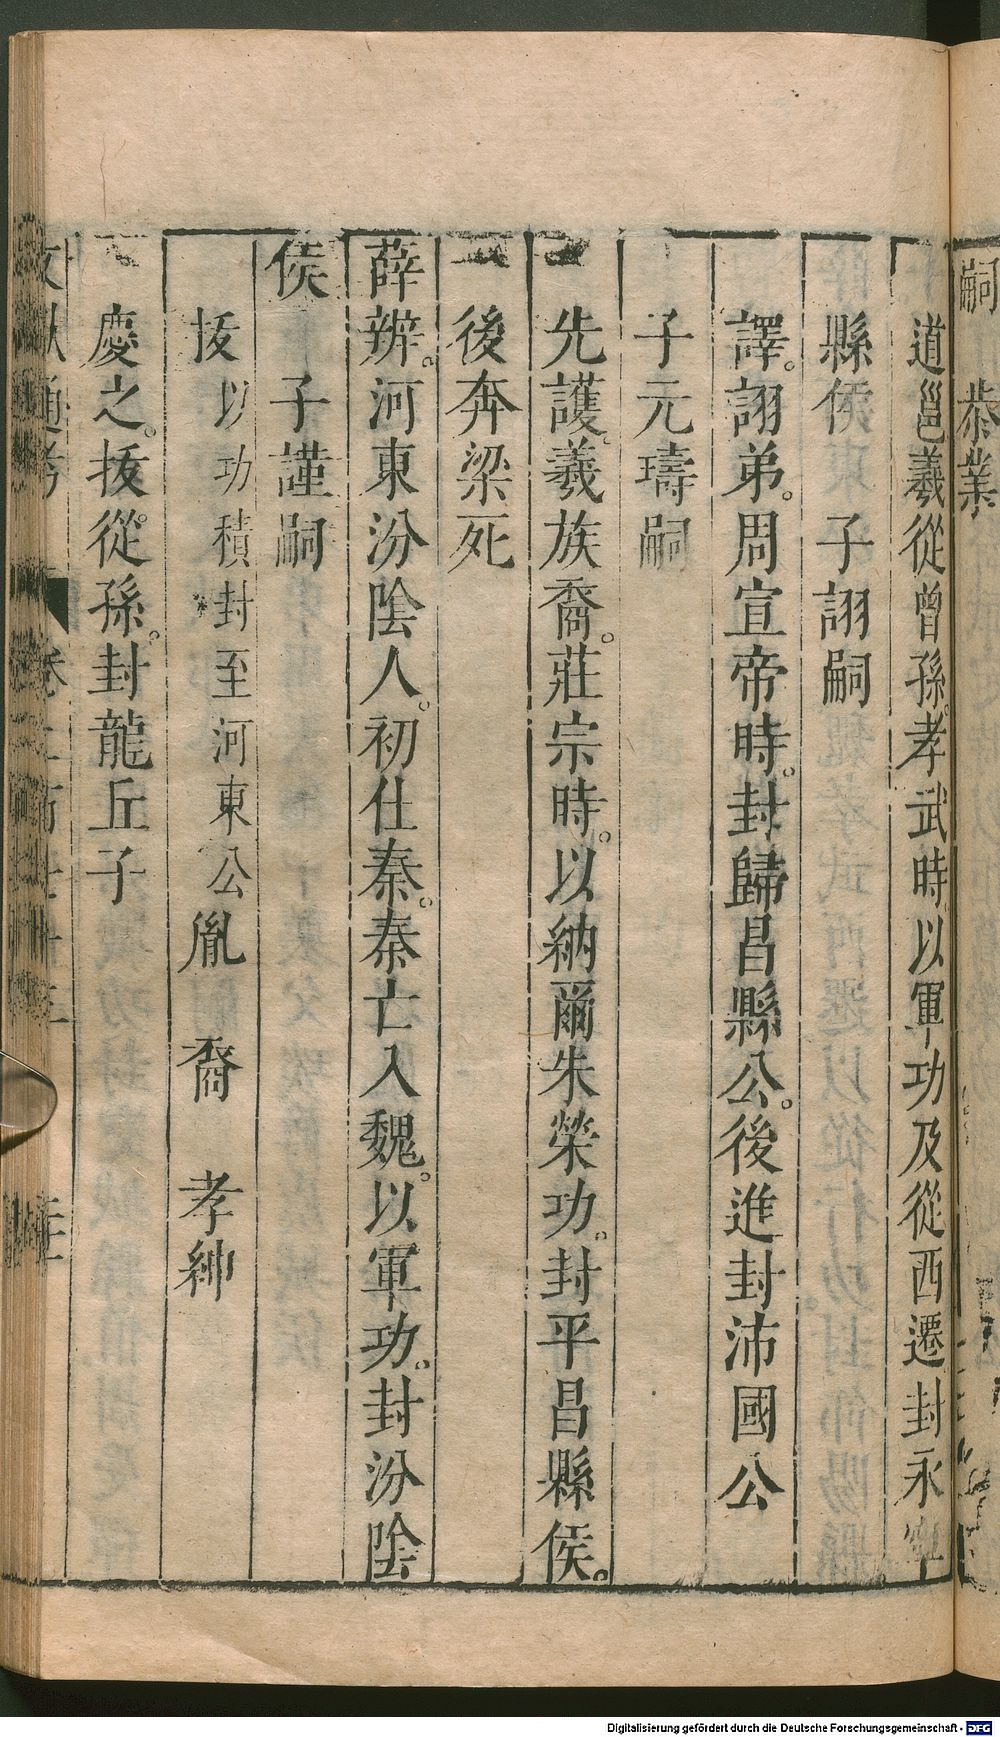 嗣　恭業
道邕羲從曾孫。孝武時以軍功及從西遷封永寧
縣侯　子詡嗣
譯。詡弟。周宣帝時。封歸昌縣公。後進封沛國公
子元璹嗣
先護。羲族裔。莊宗時。以納爾朱榮功。封平昌縣侯。
後奔梁死
薛辨。河東汾陰人。初仕秦。秦亡入魏。以軍功。封汾陰
侯　子謹嗣
拔以功積封至河東公胤　裔　孝紳
慶之。拔從孫。封龍丘子
文獻通考　卷二百七十三
Digitalisierung gefördert durch die Deutsche Forschungsgemeinschaft - DFG